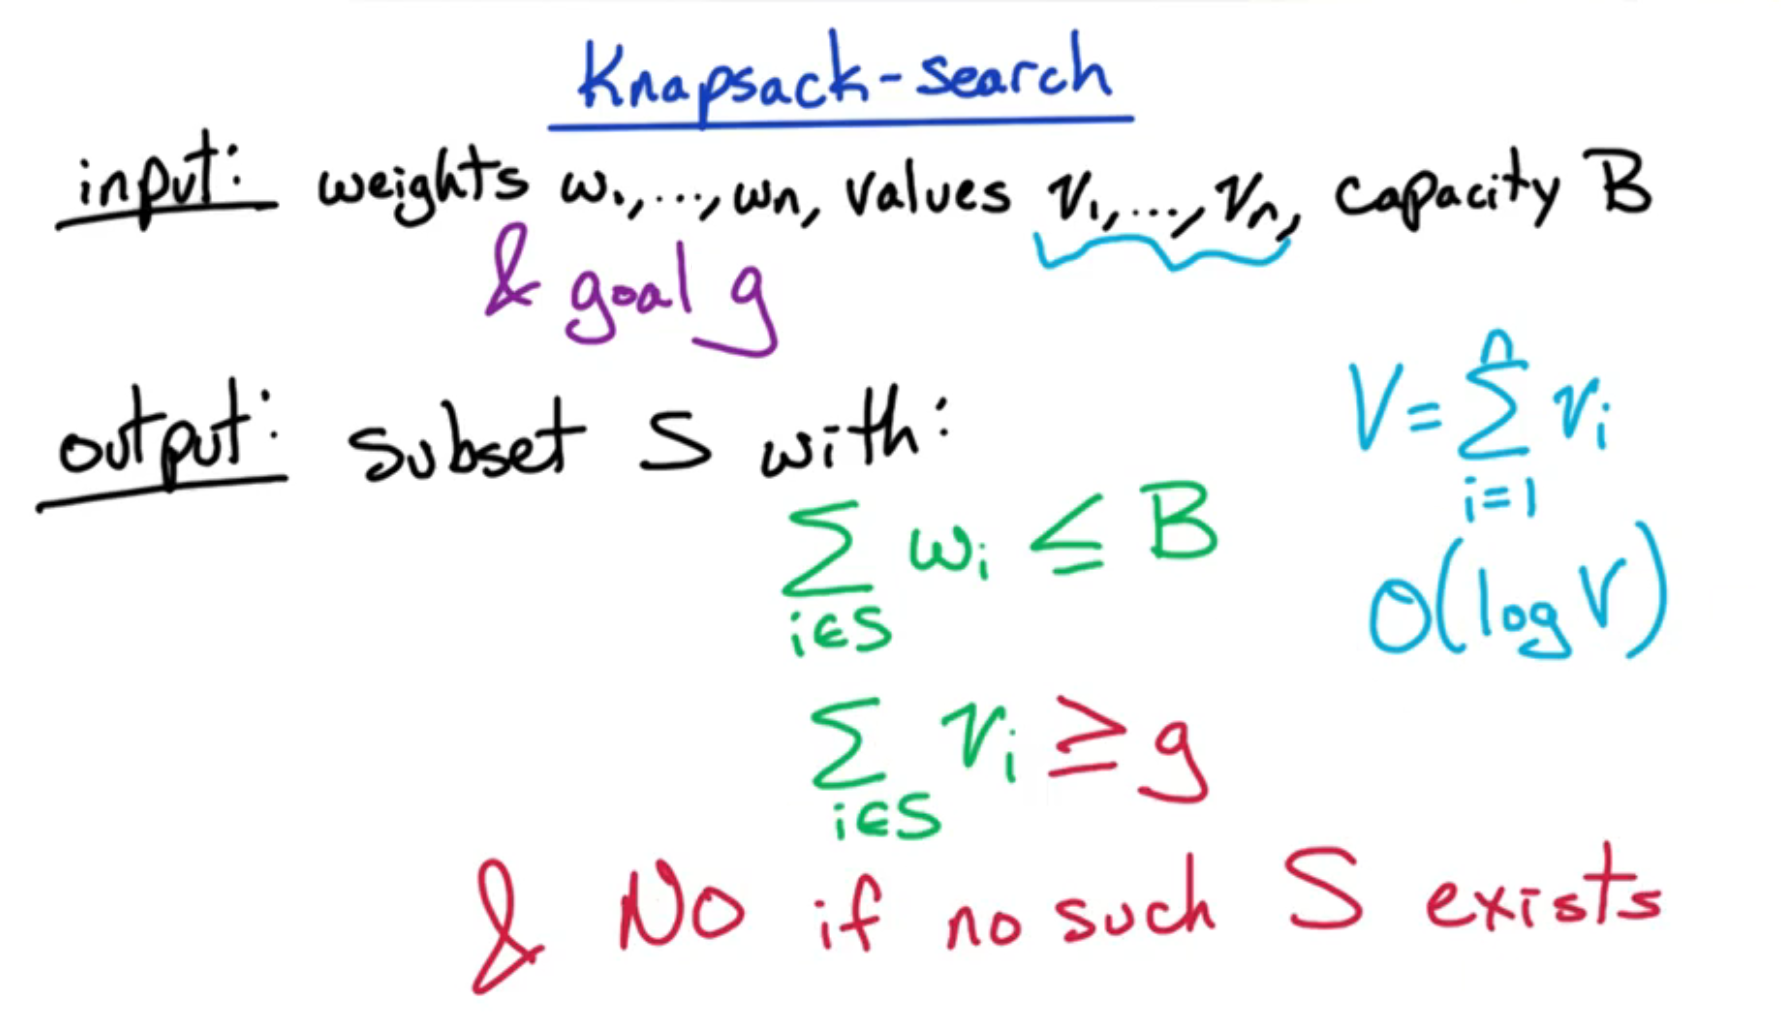 Knapsack-search
input: weights w₁,...,wn, values v₁,...,vn, capacity B
& goal g
output: subset S with:
V = ∑ⁿᵢ₌₁ vᵢ
∑i∈S wᵢ ≤ B
O(log V)
∑i∈S vᵢ ≥ g
& No if no such S exists